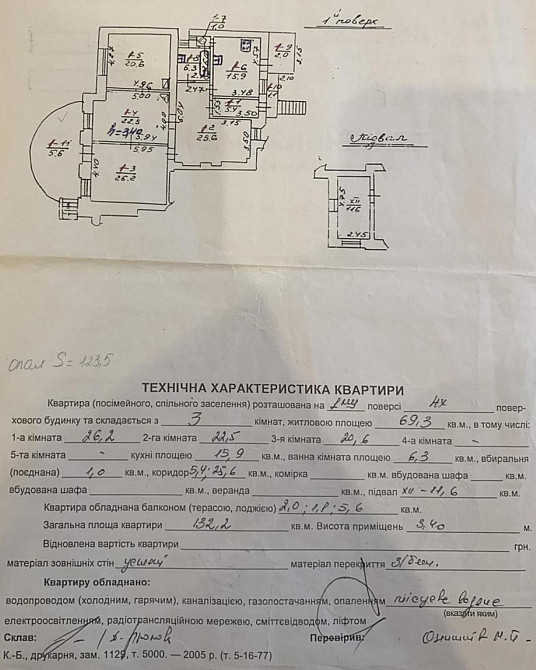 1й поверх
1-7
1,0
1-5
20,6
4,27
4,86
5,00
6,3
2,47
1-6
15,9
4,57
1-9
2,0
2,15
2,10
1-10
3,48
1-1
5,4
3,50
3,75
1-2
25,6
3,50
1-4
22,5
h=3,40
5,94
5,95
4,40
1-3
26,2
1-11
5,6
Підвал
XII
11,6
4,75
2,45
опал S = 123,5
ТЕХНІЧНА ХАРАКТЕРИСТИКА КВАРТИРИ
Квартира (посімейного, спільного заселення) розташована на поверсі 4х повер-
хового будинку та складається з 3 кімнат, житловою площею 69,3 кв.м., в тому числі:
1-а кімната 26,2 2-га кімната 22,5 3-я кімната 20,6 4-а кімната -
5-та кімната - кухні площею 15,9 кв.м., ванна кімната площею 6,3 кв.м., вбиральня
(поєднана) 1,0 кв.м., коридор 5,4; 25,6 кв.м., комірка кв.м., вбудована шафа кв.м.
вбудована шафа кв.м., веранда кв.м., підвал XII - 11,6 кв.м.
Квартира обладнана балконом (терасою, лоджією) 2,0; 1,1; 5,6 кв.м.
Загальна площа квартири 132,2 кв.м. Висота приміщень 3,40 м.
Відновлена вартість квартири грн.
матеріал зовнішніх стін матеріал перекриття з/бет.
Квартиру обладнано:
водопроводом (холодним, гарячим), каналізацією, газопостачанням, опаленням місцеве водяне
(вказати яким)
електроосвітленням, радіотрансляційною мережею, сміттєзвідводом, ліфтом
Склав: Перевірив:
К.-Б., друкарня, зам. 1129, т. 5000. — 2005 р. (т. 5-16-77)